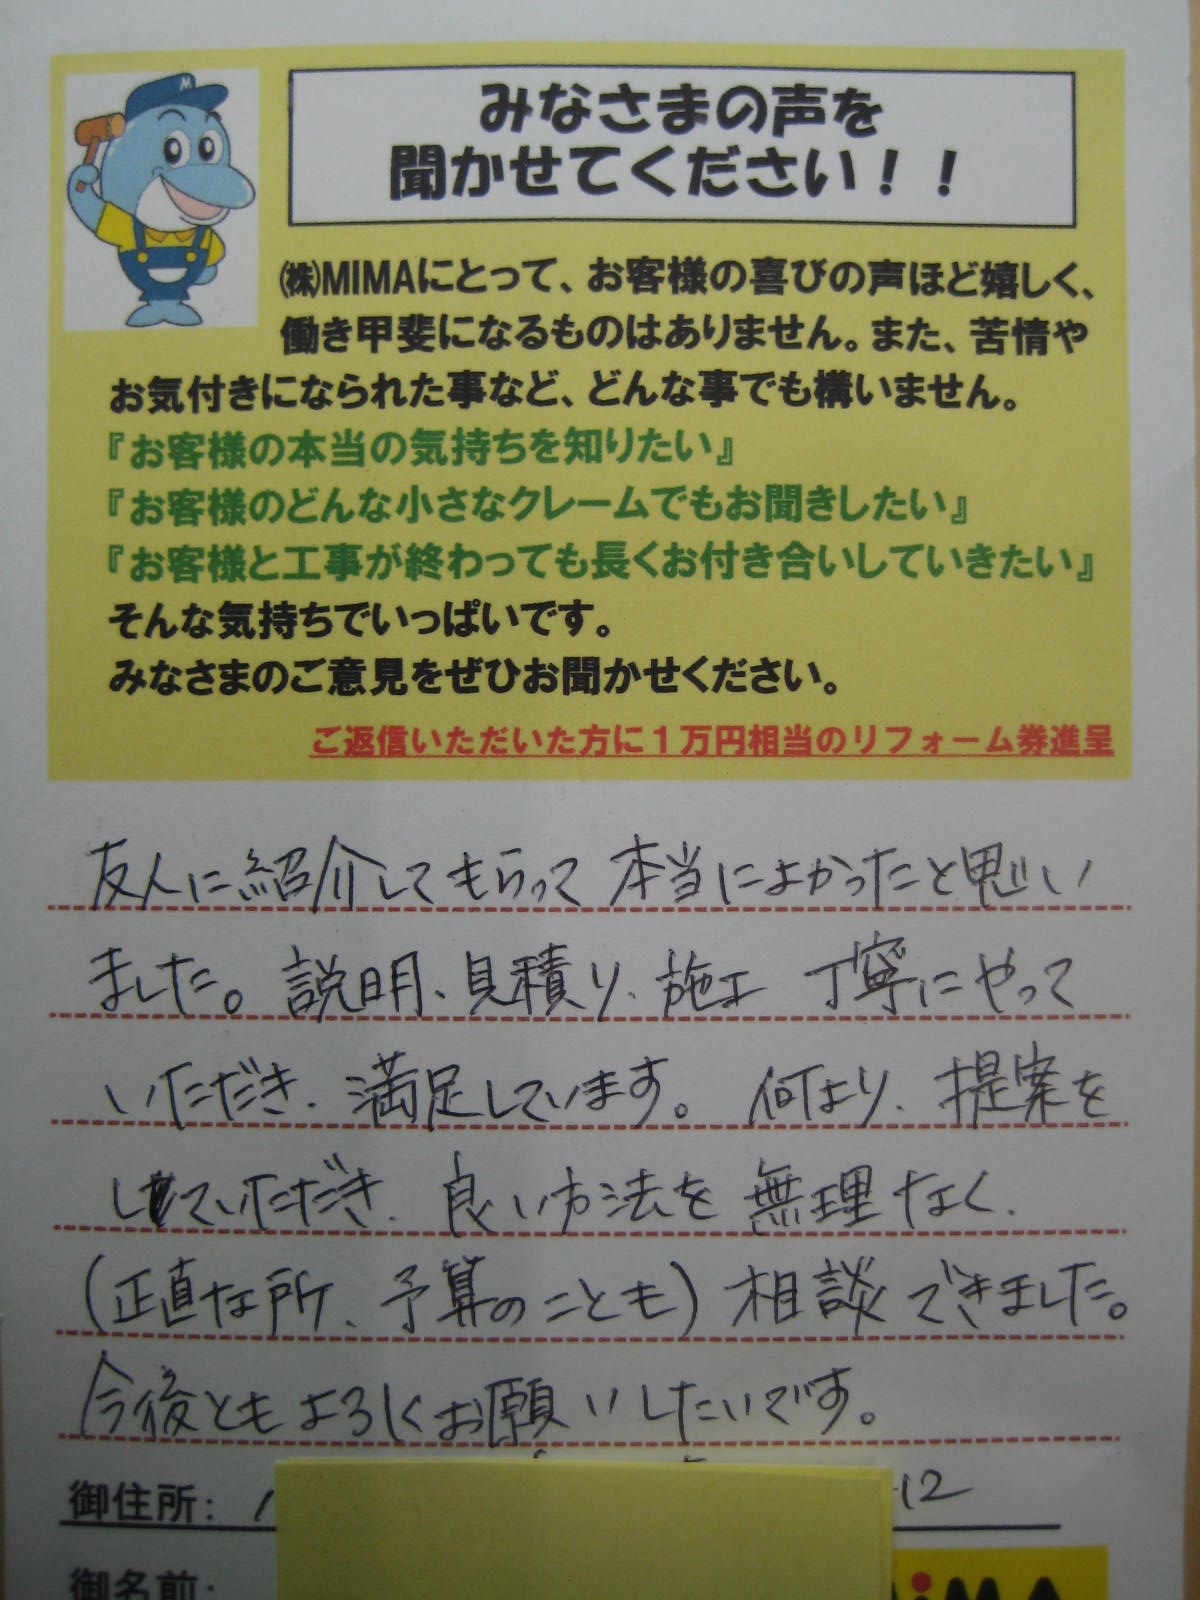 M
みなさまの声を
聞かせてください！！
㈱MIMAにとって、お客様の喜びの声ほど嬉しく、
働き甲斐になるものはありません。また、苦情や
お気付きになられた事など、どんな事でも構いません。
『お客様の本当の気持ちを知りたい』
『お客様のどんな小さなクレームでもお聞きしたい』
『お客様と工事が終わっても長くお付き合いしていきたい』
そんな気持ちでいっぱいです。
みなさまのご意見をぜひお聞かせください。
ご返信いただいた方に１万円相当のリフォーム券進呈
友人に紹介してもらって本当によかったと思い
ました。説明、見積り、施工 丁寧にやって
いただき、満足しています。何より、提案を
していただき、良い方法を無理なく、
(正直な所、予算のことも)相談できました。
今後ともよろしくお願いしたいです。
御住所: -12
御名前:
MiMA